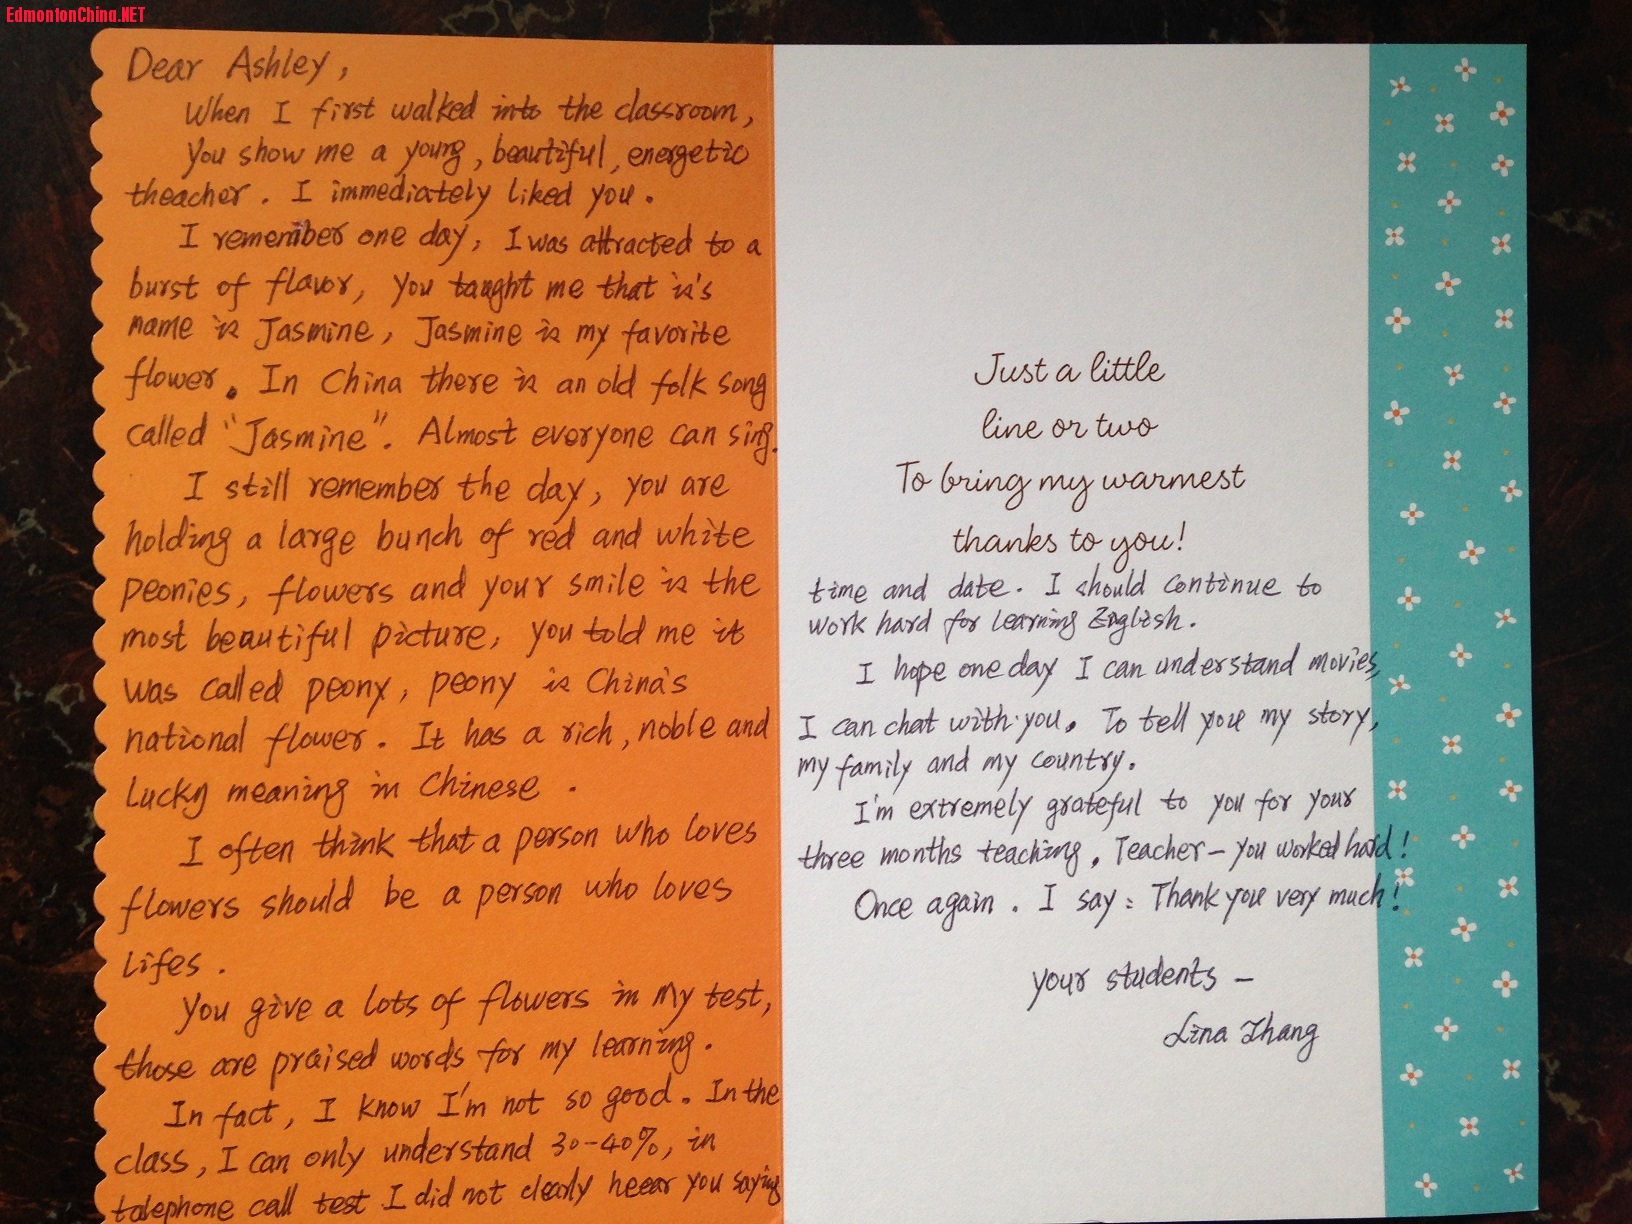 EdmontonChina.NET
Dear Ashley,
When I first walked into the classroom,
you show me a young, beautiful, energetic
theacher. I immediately liked you.
I remember one day, I was attracted to a
burst of flavor, you taught me that is's
name is Jasmine, Jasmine is my favorite
flower. In China there is an old folk song
called "Jasmine". Almost everyone can sing.
I still remember the day, you are
holding a large bunch of red and white
peonies, flowers and your smile is the
most beautiful picture, you told me it
was called peony, peony is China's
national flower. It has a rich, noble and
Lucky meaning in Chinese.
I often think that a person who loves
flowers should be a person who loves
lifes.
You give a lots of flowers in my test,
those are praised words for my learning.
In fact, I know I'm not so good. In the
class, I can only understand 30-40%, in
telephone call test I did not clearly heear you saying
Just a little
line or two
To bring my warmest
thanks to you!
time and date. I should continue to
work hard for learning English.
I hope one day I can understand movies,
I can chat with you. To tell you my story,
my family and my country.
I'm extremely grateful to you for your
three months teaching. Teacher - you worked hard!
Once again. I say: Thank you very much!
your students -
Lina Zhang